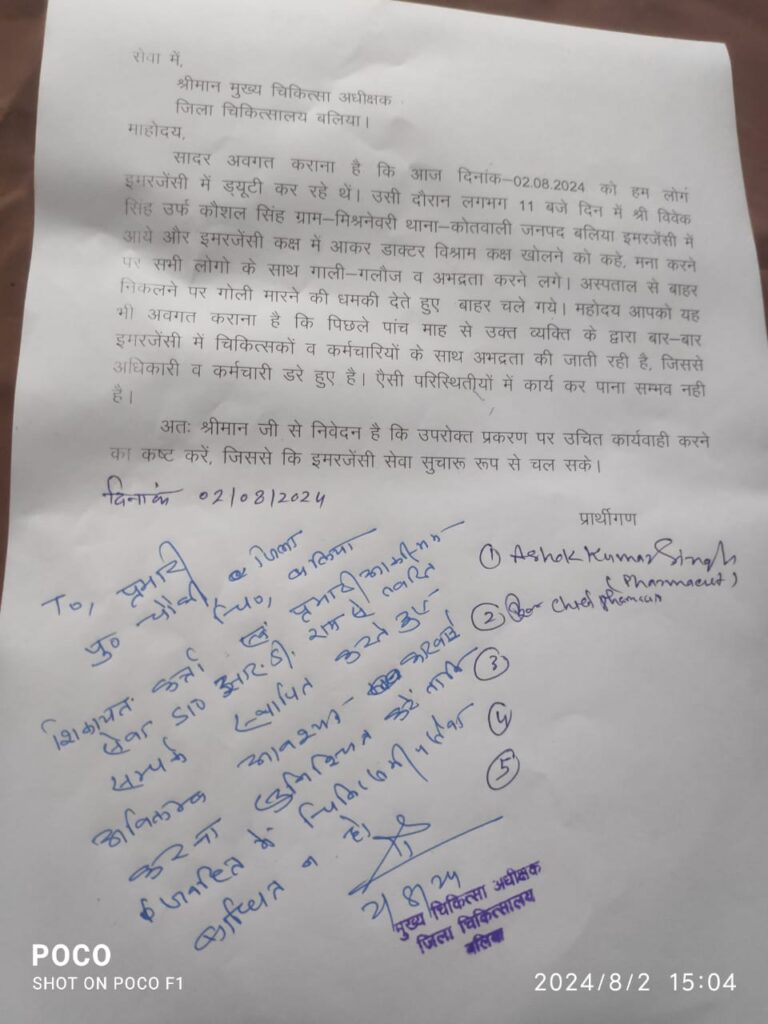 सेवा में,
श्रीमान मुख्य चिकित्सा अधीक्षक
जिला चिकित्सालय बलिया।
माहोदय,
सादर अवगत कराना है कि आज दिनांक–02.08.2024 को हम लोगं
इमरजेंसी में ड्यूटी कर रहे थें। उसी दौरान लगभग 11 बजे दिन में श्री विवेक
सिंह उर्फ कौशल सिंह ग्राम–मिश्रनेवरी थाना–कोतवाली जनपद बलिया इमरजेंसी में
आये और इमरजेंसी कक्ष में आकर डाक्टर विश्राम कक्ष खोलने को कहे, मना करने
पर सभी लोगो के साथ गाली–गलौज व अभद्रता करने लगे। अस्पताल से बाहर
निकलने पर गोली मारने की धमकी देते हुए बाहर चले गये। महोदय आपको यह
भी अवगत कराना है कि पिछले पांच माह से उक्त व्यक्ति के द्वारा बार–बार
इमरजेंसी में चिकित्सकों व कर्मचारियों के साथ अभद्रता की जाती रही है, जिससे
अधिकारी व कर्मचारी डरे हुए है। ऐसी परिस्थिती्यों में कार्य कर पाना सम्भव नही
है।
अतः श्रीमान जी से निवेदन है कि उपरोक्त प्रकरण पर उचित कार्यवाही करने
का कष्ट करें, जिससे कि इमरजेंसी सेवा सुचारू रूप से चल सके।
दिनांक 02/08/2024
प्रार्थीगण
① Ashok Kumar Singh
(Pharmacist)
② Chief
③
④
⑤
To, प्रभारी
पु० चौकी जिला
चि०, बलिया
शिकायत कर्ता एवं प्रभारी
सेवा डा० आर.डी. राम से त्वरित
सम्पर्क स्थापित करते हुए
आवश्यक करवाई
करना सुनिश्चित करें ताकि
जनहित में सेवा
बाधित न हो
2/8/24
मुख्य चिकित्सा अधीक्षक
जिला चिकित्सालय
बलिया
POCO
SHOT ON POCO F1
2024/8/2 15:04